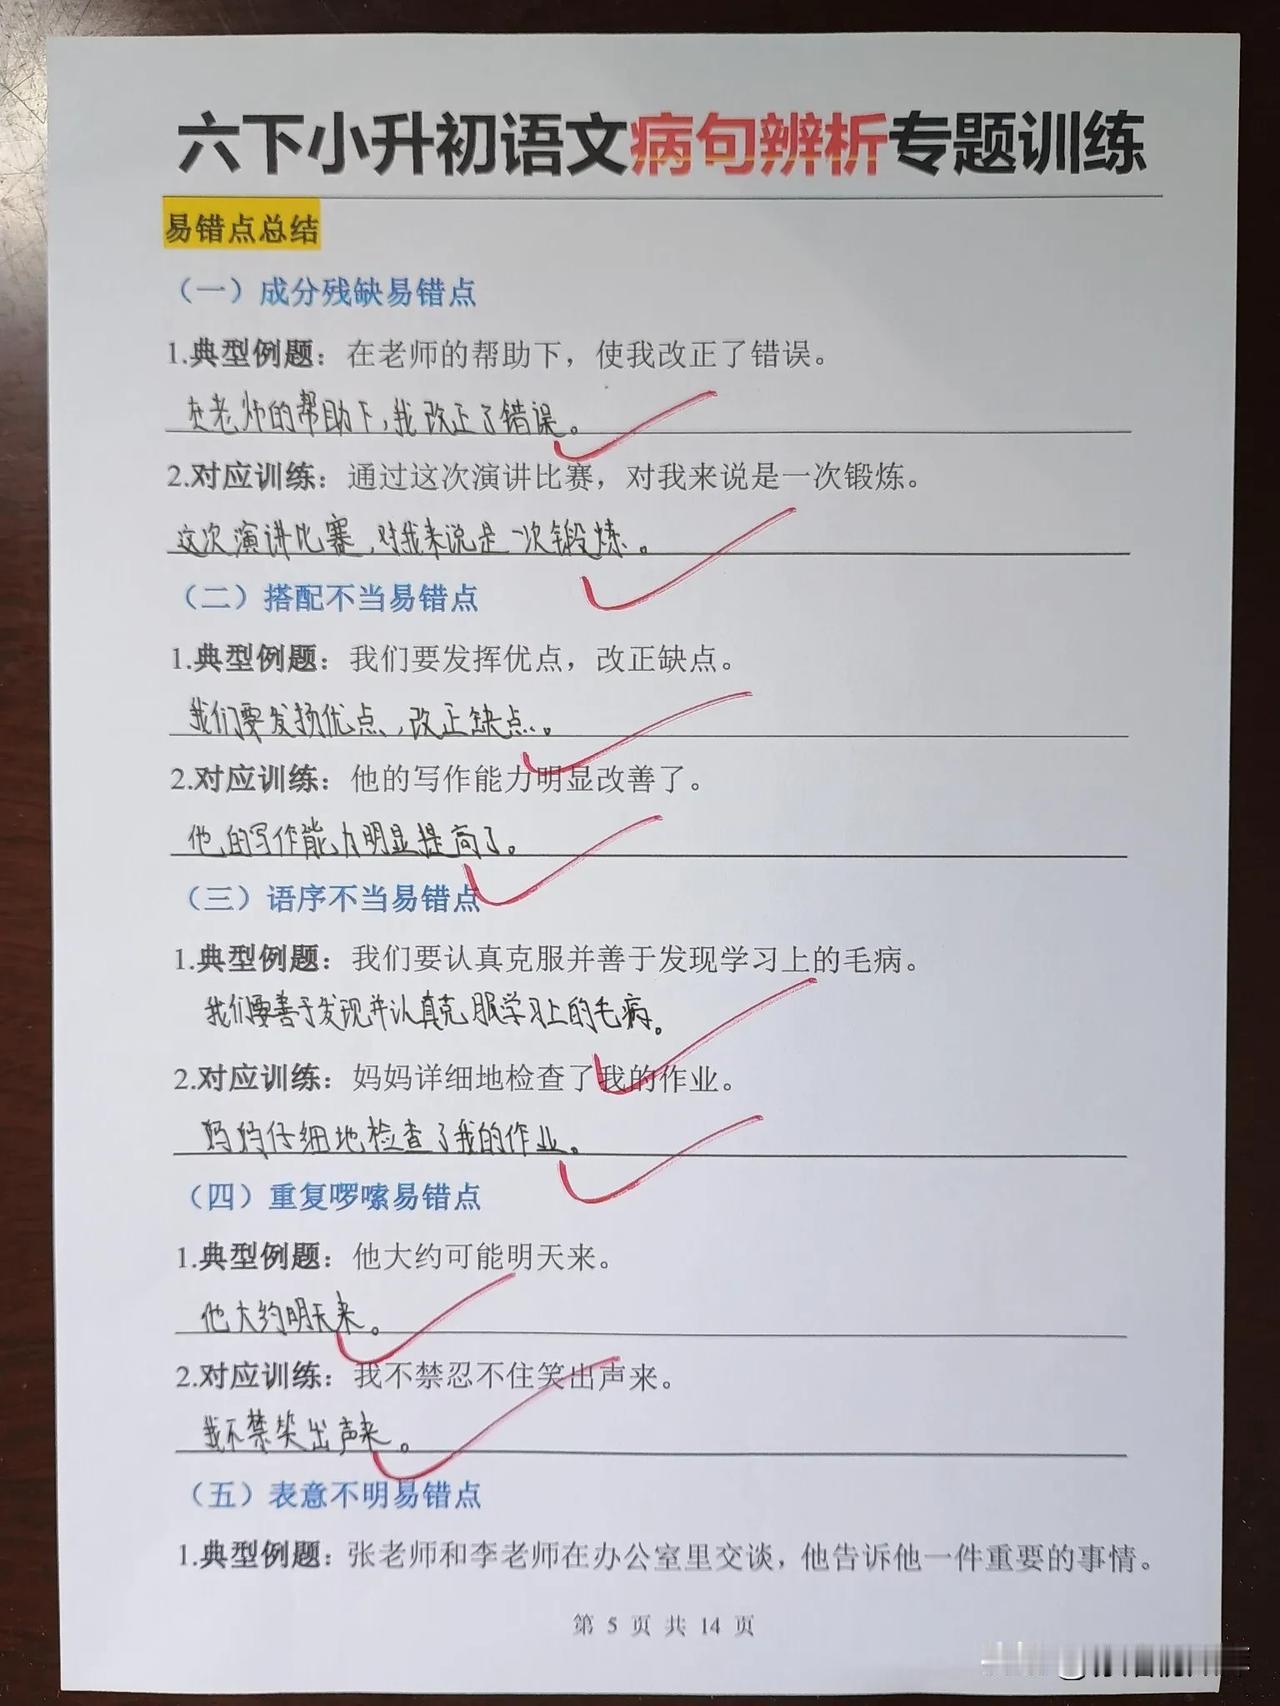 六下小升初语文病句辨析专题训练
易错点总结
（一）成分残缺易错点
1.典型例题：在老师的帮助下，使我改正了错误。
在老师的帮助下，我改正了错误。
2.对应训练：通过这次演讲比赛，对我来说是一次锻炼。
这次演讲比赛，对我来说是一次锻炼。
（二）搭配不当易错点
1.典型例题：我们要发挥优点，改正缺点。
我们要发扬优点，改正缺点。
2.对应训练：他的写作能力明显改善了。
他的写作能力明显提高了。
（三）语序不当易错点
1.典型例题：我们要认真克服并善于发现学习上的毛病。
我们要善于发现并认真克服学习上的毛病。
2.对应训练：妈妈详细地检查了我的作业。
妈妈仔细地检查了我的作业。
（四）重复啰嗦易错点
1.典型例题：他大约可能明天来。
他大约明天来。
2.对应训练：我不禁忍不住笑出声来。
我不禁笑出声来。
（五）表意不明易错点
1.典型例题：张老师和李老师在办公室里交谈，他告诉他一件重要的事情。
第 5 页 共 14 页